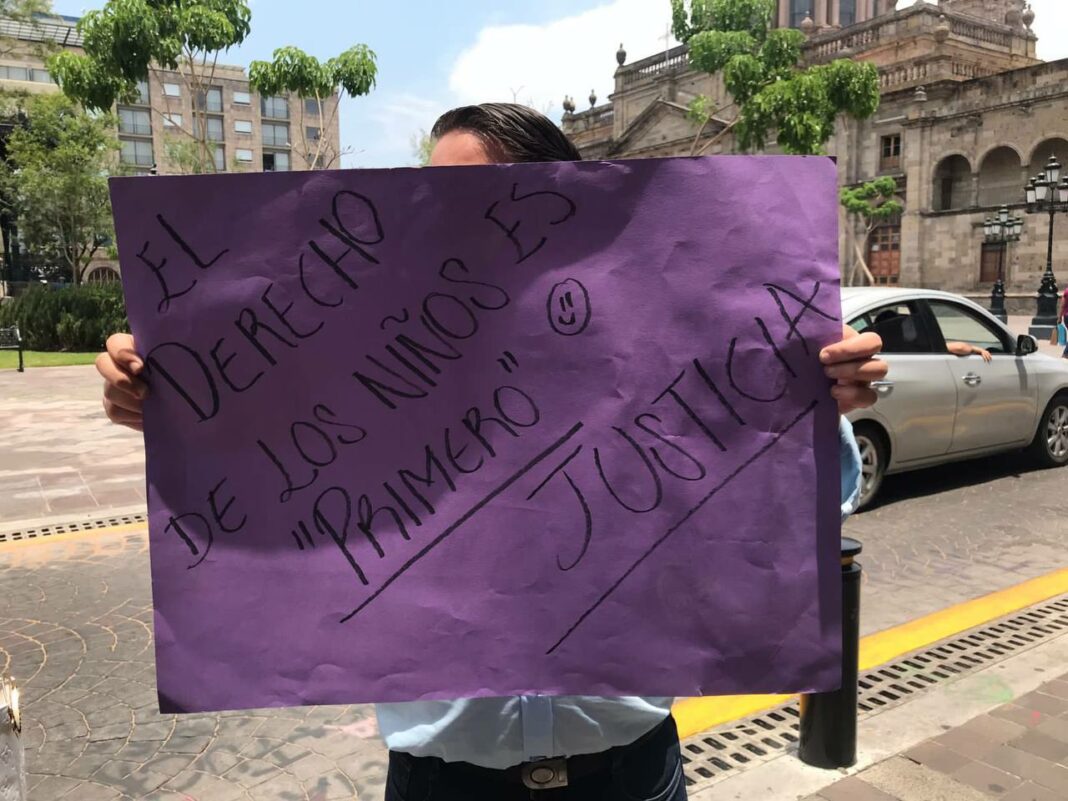 EL
DERECHO
DE LOS NIÑOS ES
"PRIMERO"
JUSTICIA